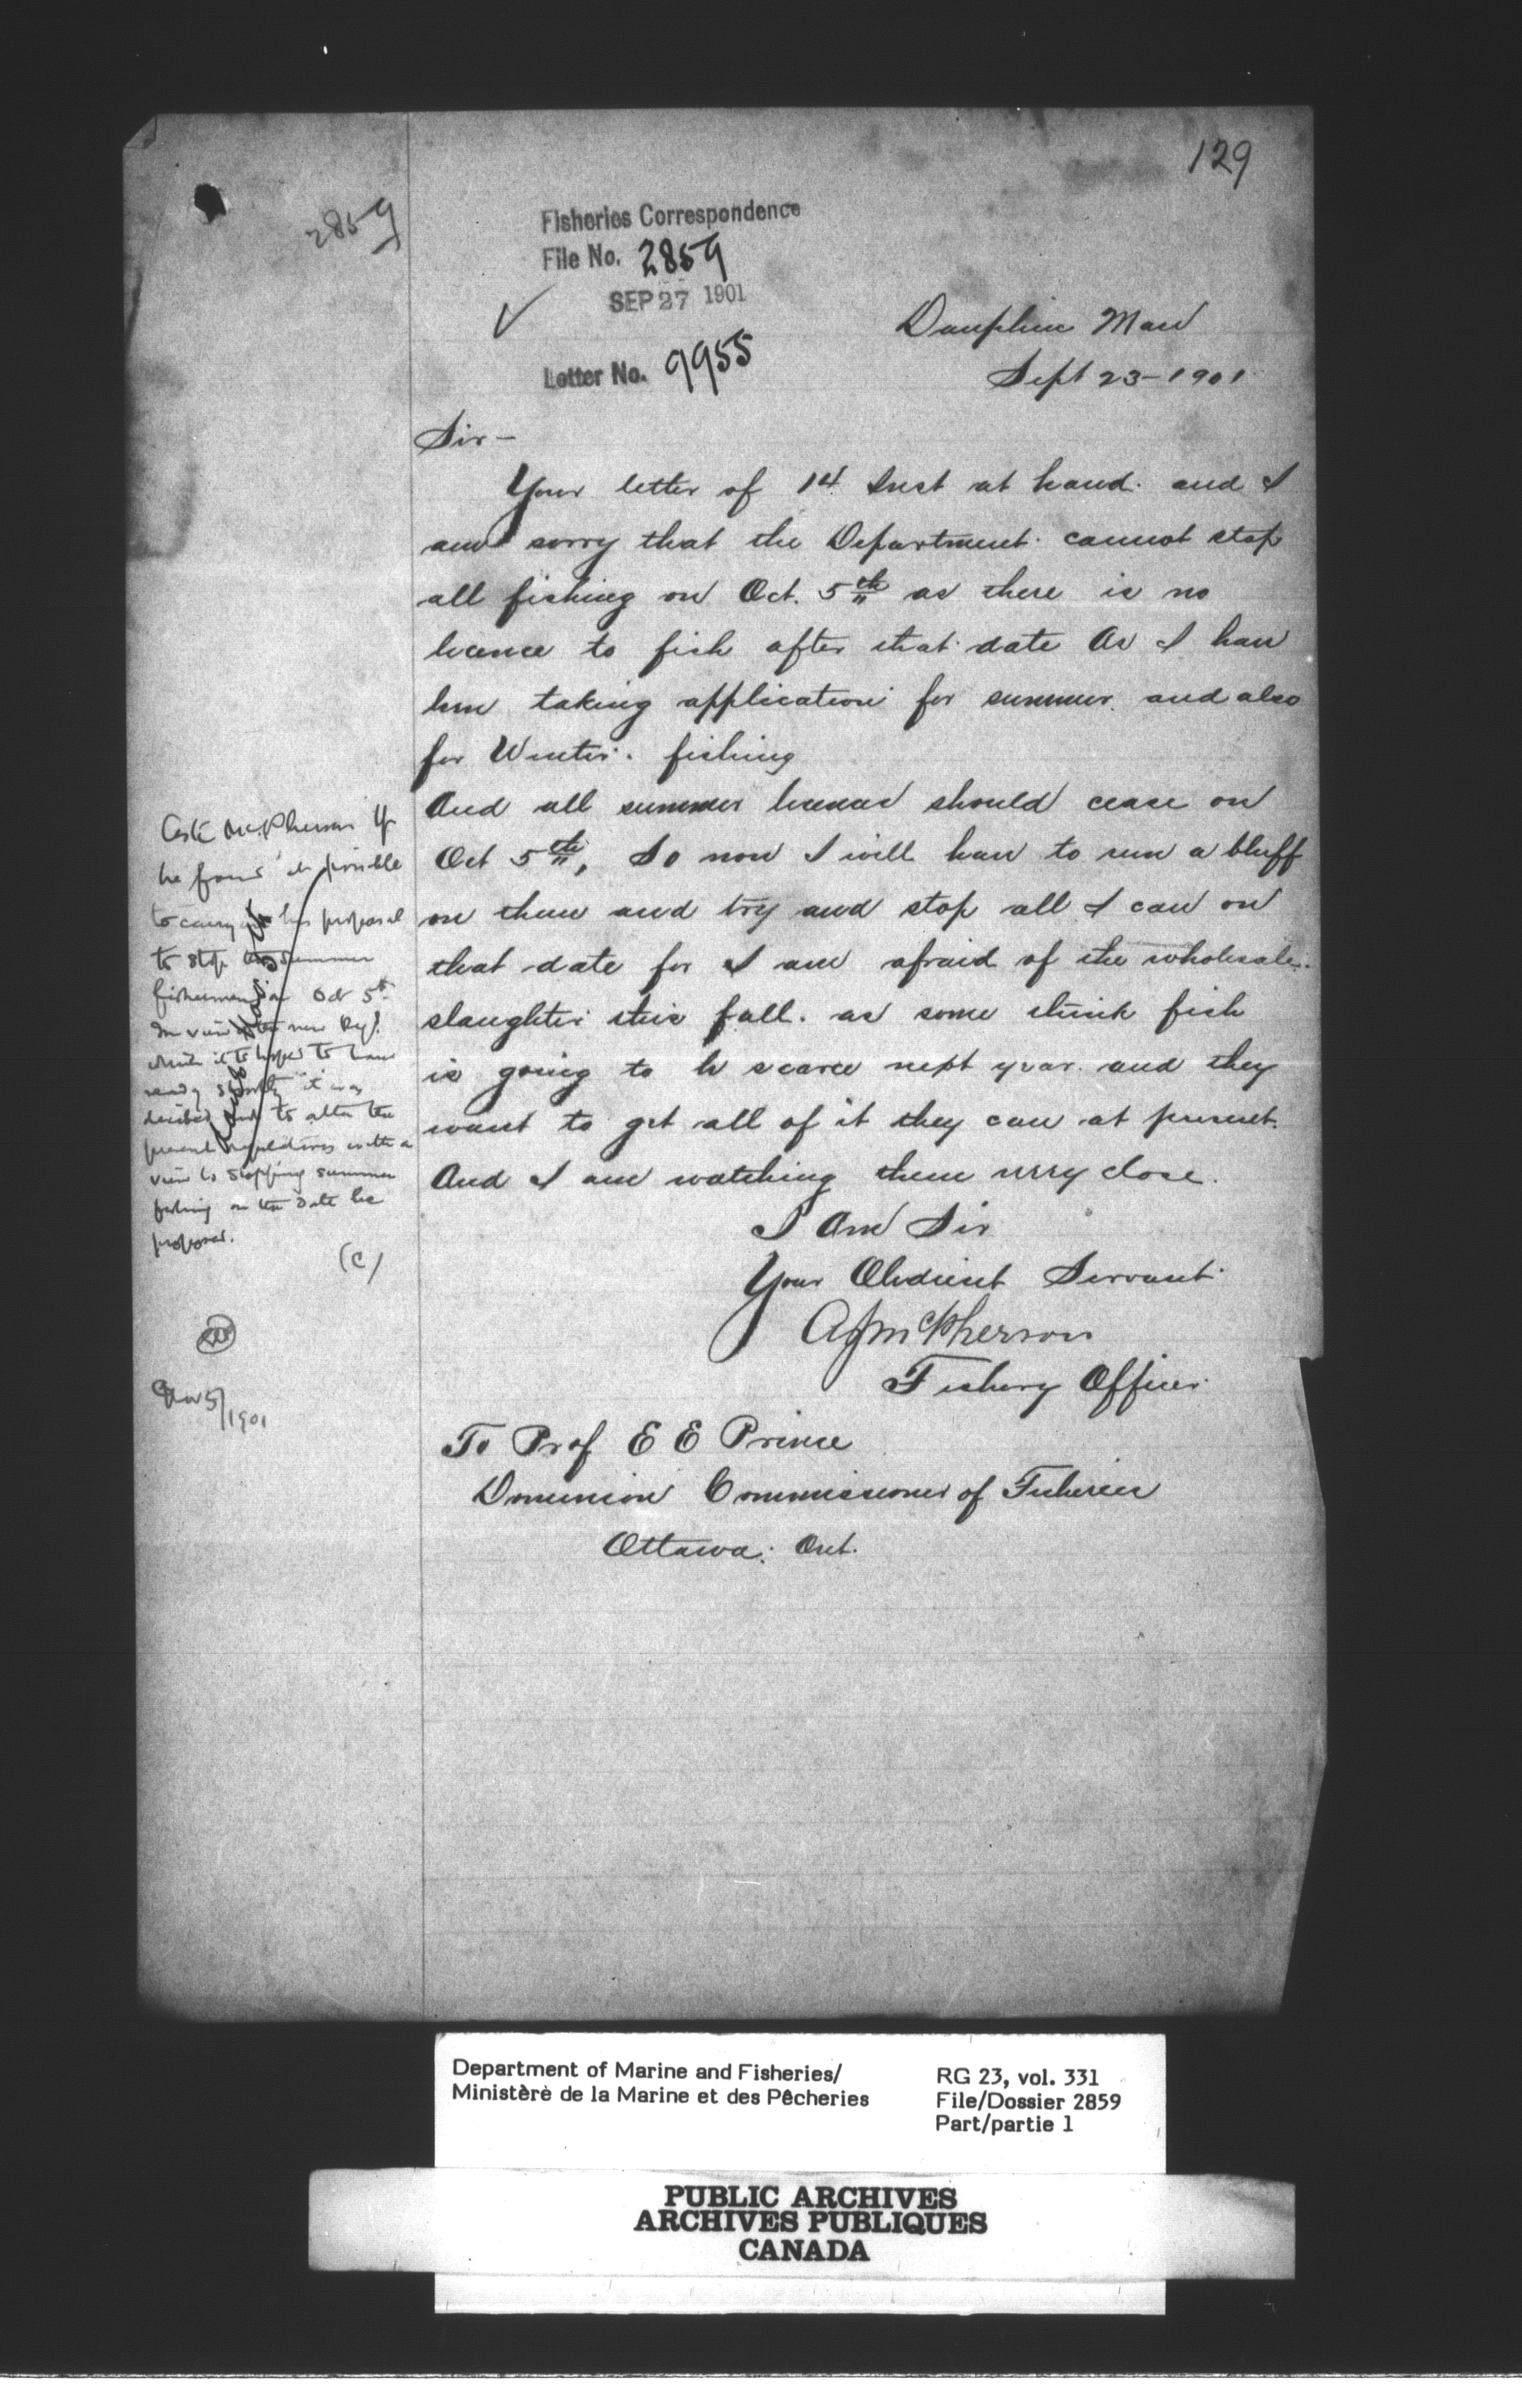 129
2859
Fisheries Correspondence
File No. 2859
SEP 27 1901
Letter No. 9955
Dauphin Man
Sept 23-1901
Sir-
Your letter of 14 Inst at hand. and I
am sorry that the Department cannot stop
all fishing on Oct. 5th as there is no
licence to fish after that date As I have
been taking application for summer and also
for Winter. fishing
And all summer licences should cease on
Oct 5th, So now I will have to run a bluff
on them and try and stop all I can on
that date for I am afraid of the wholesale
slaughter this fall. as some think fish
is going to be scarce next year. and they
want to get all of it they can at present.
And I am watching them very close.
I Am Sir
Your Obedient Servant
A J McPherson
Fishery Officer
To Prof E E Prince
Dominion Commissioner of Fisheries
Ottawa. Ont.
Ask McPherson if
he found it possible
to carry out his proposal
to stop summer
fishermen on Oct 5th
In view new Regs.
which it is hoped to have
ready shortly it was
decided not to alter the
present regulations with a
view to stopping summer
fishing on the date he
proposes.
(C)
Nov 5/1901
Department of Marine and Fisheries/
Ministère de la Marine et des Pêcheries
RG 23, vol. 331
File/Dossier 2859
Part/partie 1
PUBLIC ARCHIVES
ARCHIVES PUBLIQUES
CANADA